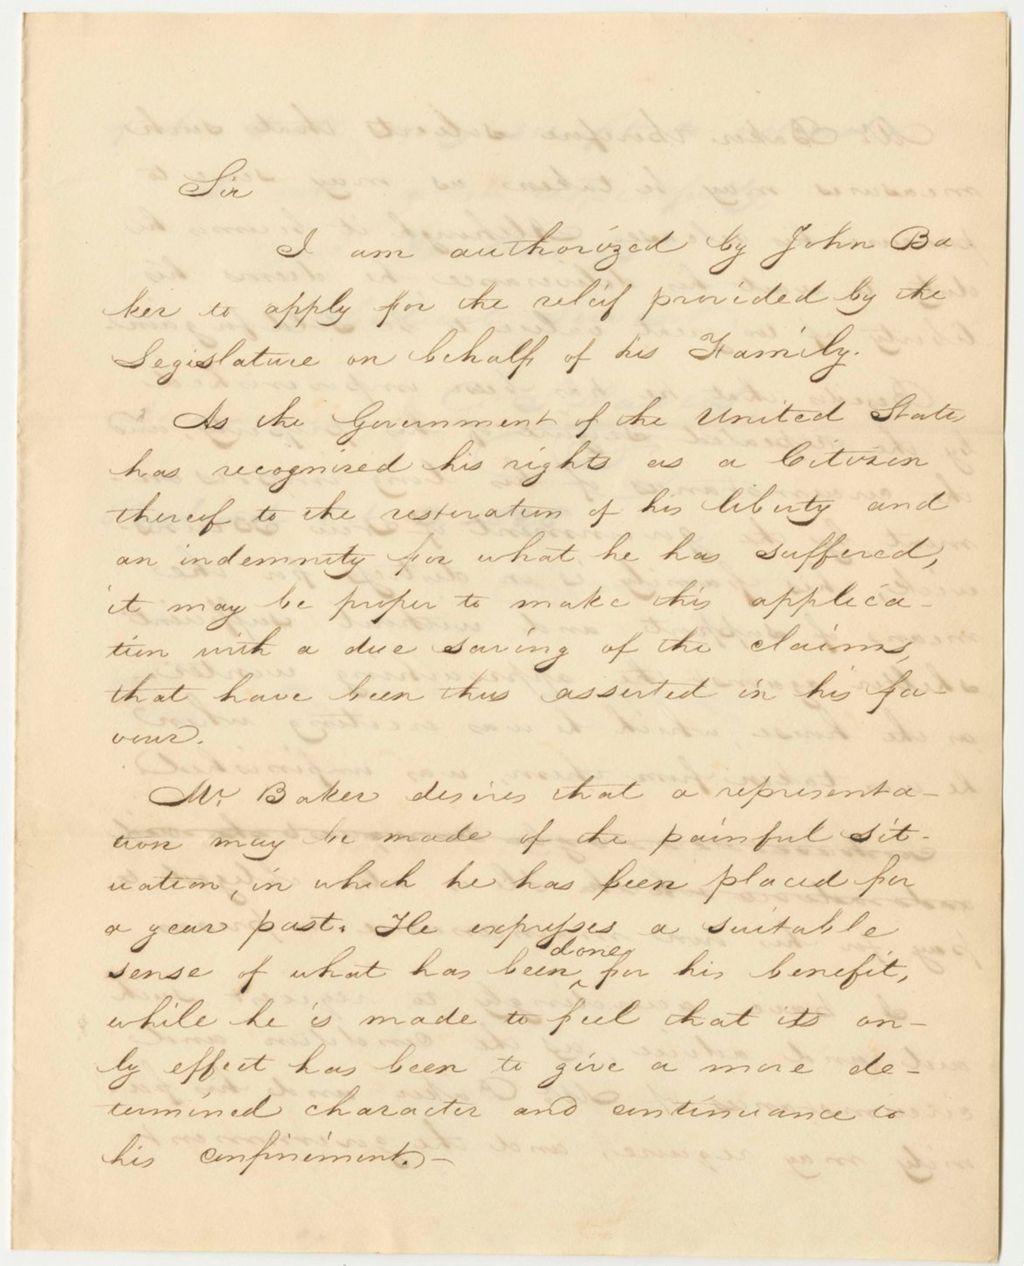 Sir
I am authorized by John Ba
ker to apply for the relief provided by the
Legislature on behalf of his Family.
As the Government of the United States
has recognized his rights as a Citizen
thereof to the restoration of his liberty and
an indemnity for what he has suffered,
it may be proper to make this applica-
tion with a due saving of the claims,
that have been thus asserted in his fa-
vour.
Mr Baker desires that a representa-
tion may be made of the painful sit-
uation, in which he has been placed for
a year past. He expresses a suitable
sense of what has been done for his benefit,
while he is made to feel that its on-
ly effect has been to give a more de-
termined character and continuance to
his confinement.-